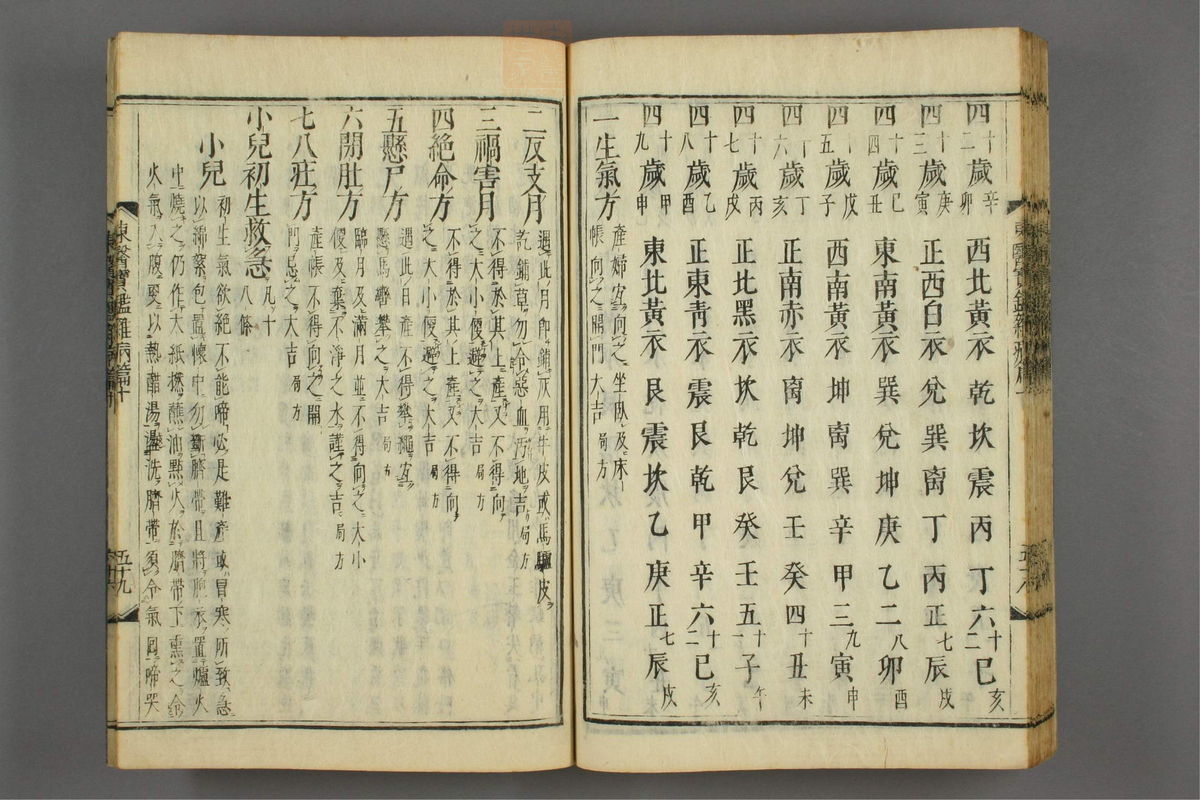 四十二歲辛卯 西北黃衣 乾坎震丙 丁六十二巳亥
四十三歲庚寅 正西白衣 兌巽离丁 丙正七辰戌
四十四歲己丑 東南黃衣 巽兌坤庚 乙二八卯酉
四十五歲戊子 西南黃衣 坤离巽辛 甲三九寅申
四十六歲丁亥 正南赤衣 离坤兌壬 癸四十丑未
四十七歲丙戌 正北黑衣 坎乾艮癸 壬五十一子午
四十八歲乙酉 正東青衣 震艮乾甲 辛六十二巳亥
四十九歲甲申 東北黃衣 艮震坎乙 庚正七辰戌
一生氣方 產婦宜向之坐臥及床
帳向之開門大吉 局方
東醫寶鑑雜病篇十
二反支月 遇此月卽鋪灰用牛皮或馬驢皮
訖鋪草勿令惡血汚地吉 局方
三禍害月 不得於其上產又不得向
之大小便避之大吉 局方
四絶命方 不得於其上產又不得向
之大小便避之大吉 局方
五懸尸方 遇此日產不得攀繩宜
懸馬轡攀之大吉 局方
六閉肚方 臨月及滿月並不得向之大小
便及棄不淨之水謹之吉 局方
七八莊方 產帳不得向之開
門忌之大吉 局方
小兒初生救急 凡十八條
小兒初生氣欲絶不能啼必是難產或冒寒所致急
以綿絮包置懷中勿斷臍帶且將胞衣置爐火
中燒之仍作大紙撚蘸油點火於臍帶下熏之令
火氣入腹更以熱醋湯盪洗臍帶須令氣回啼哭
東醫寶鑑雜病篇十
五十九